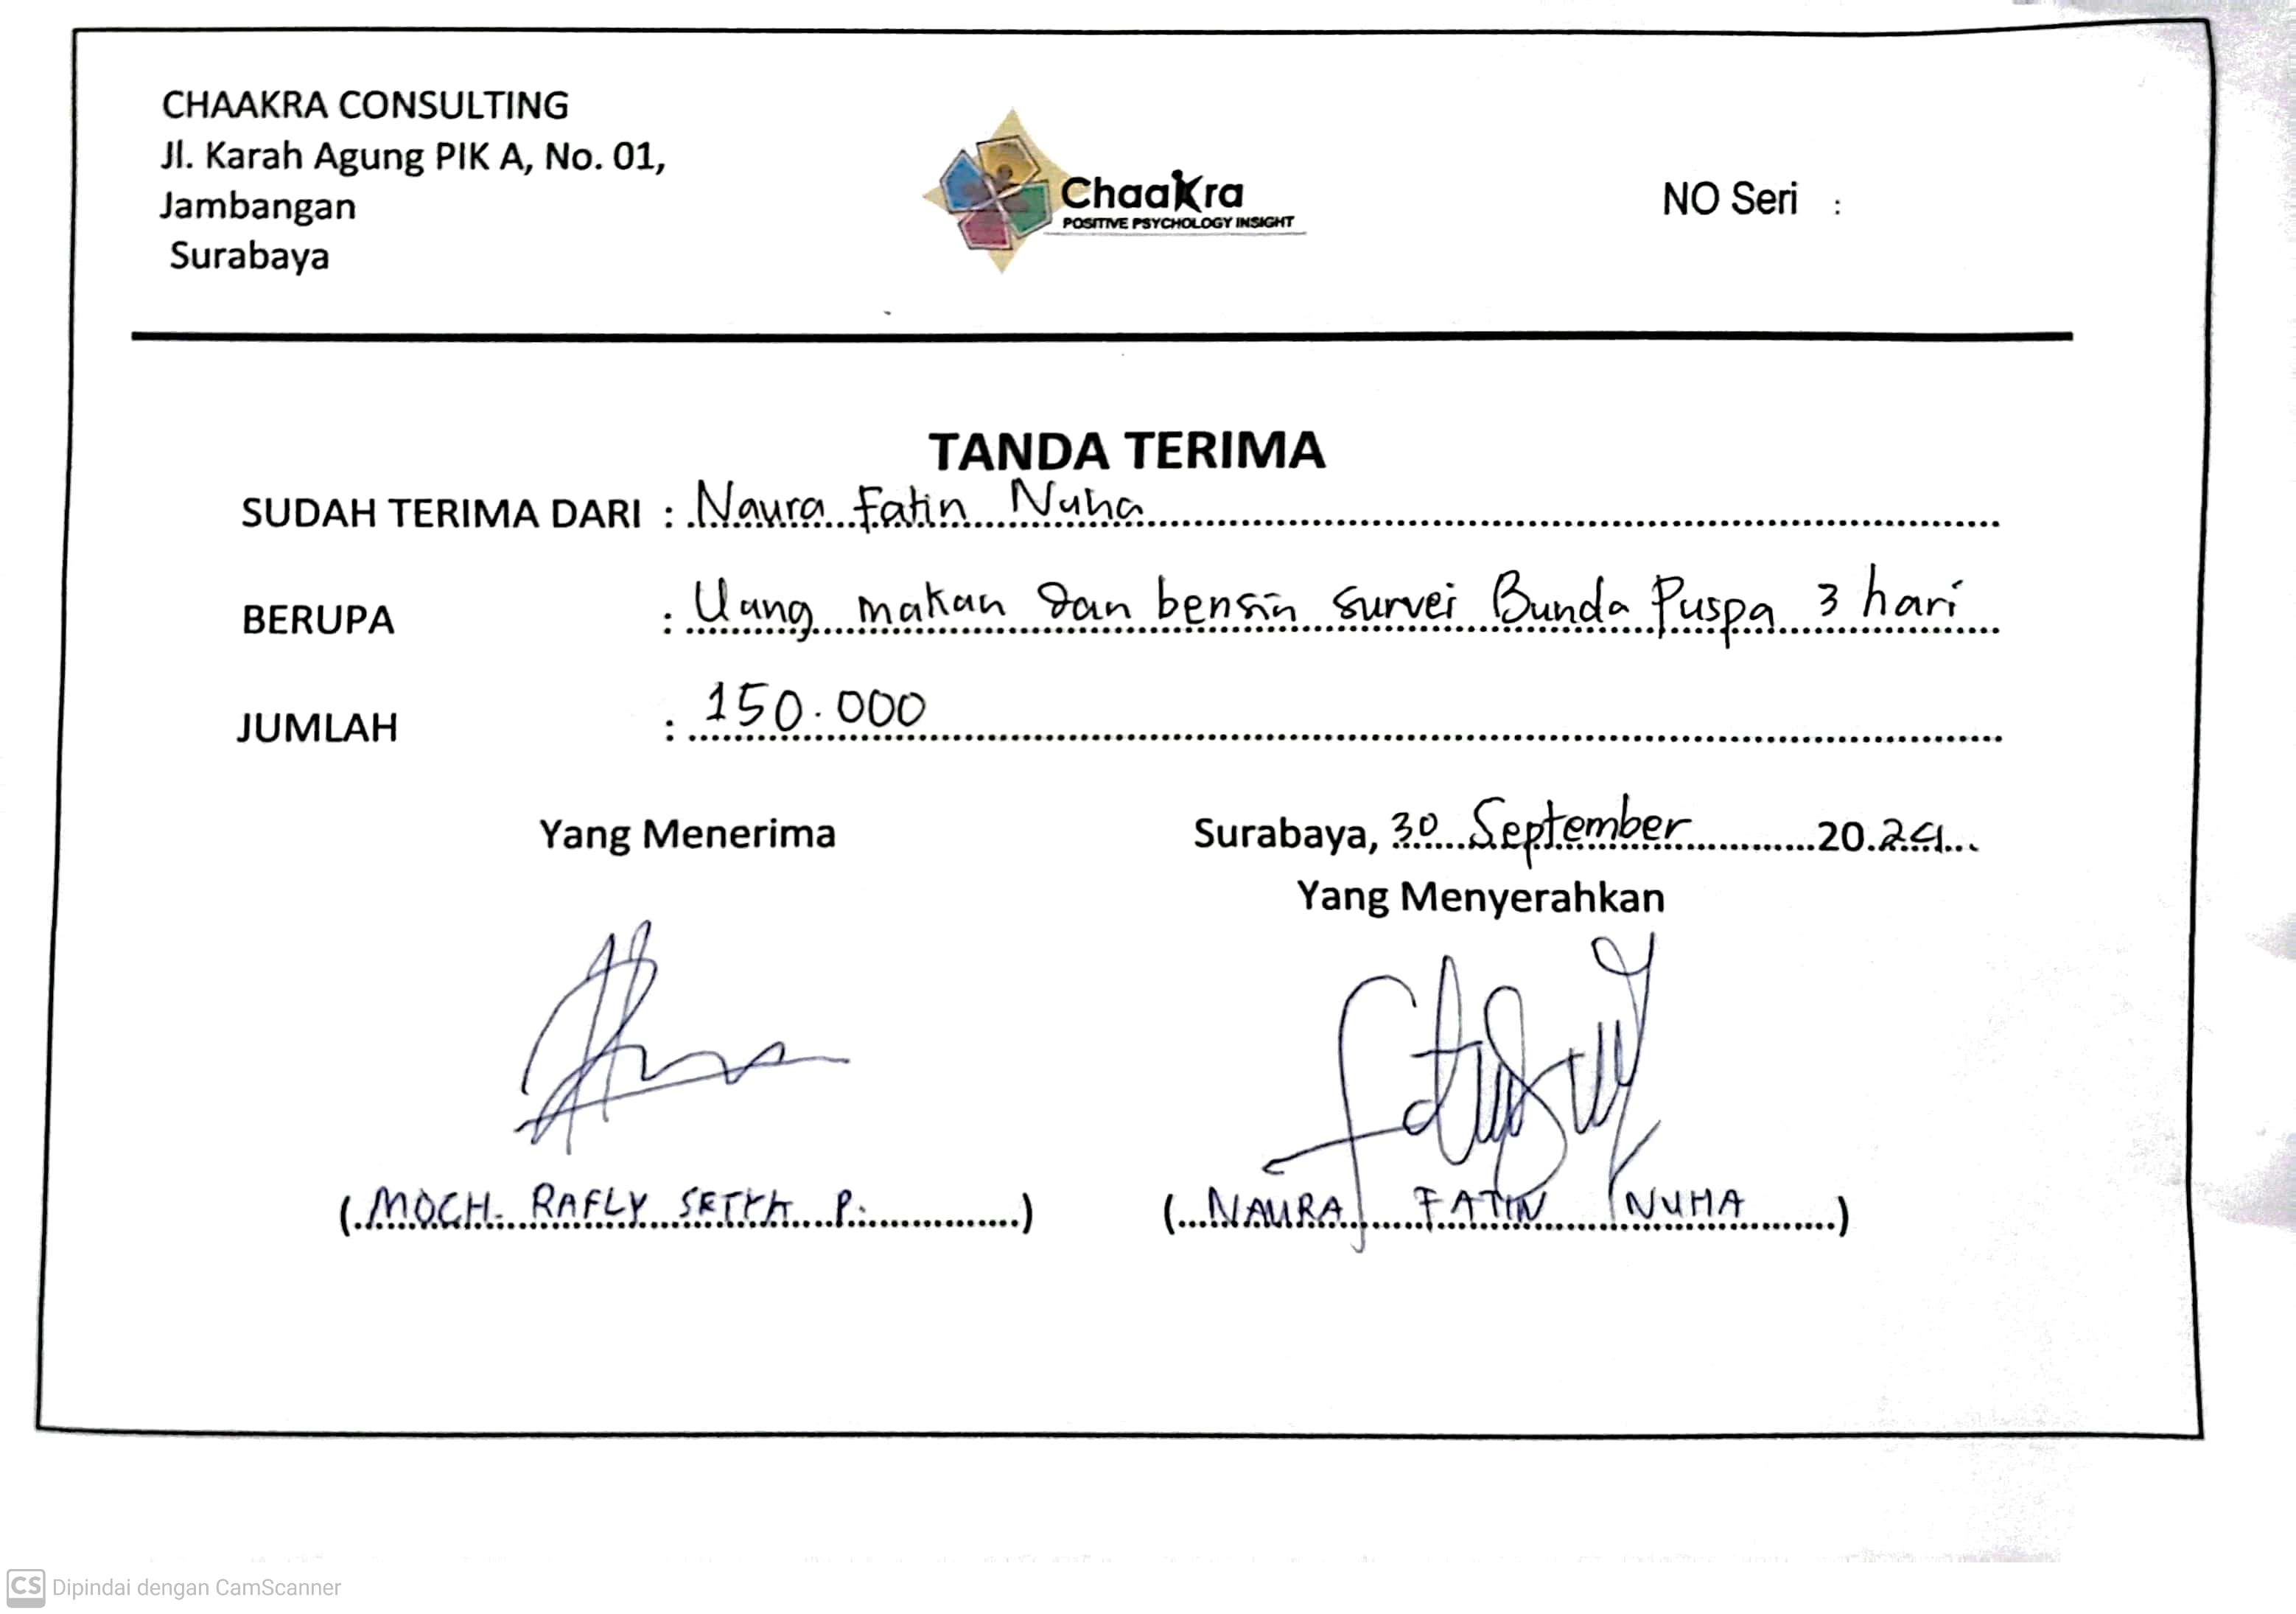 CHAAKRA CONSULTING
Jl. Karah Agung PIK A, No. 01,
Jambangan
Surabaya
ChaaKra
POSITIVE PSYCHOLOGY INSIGHT
NO Seri :
TANDA TERIMA
SUDAH TERIMA DARI : Naura Fatin Nuha
BERUPA : Uang makan dan bensin survei Bunda Puspa 3 hari
JUMLAH : 150.000
Yang Menerima
Surabaya, 30 September 2024
Yang Menyerahkan
(MOCH. RAFLY SETYA P.)
(NAURA FATIN NUHA)
CS Dipindai dengan CamScanner